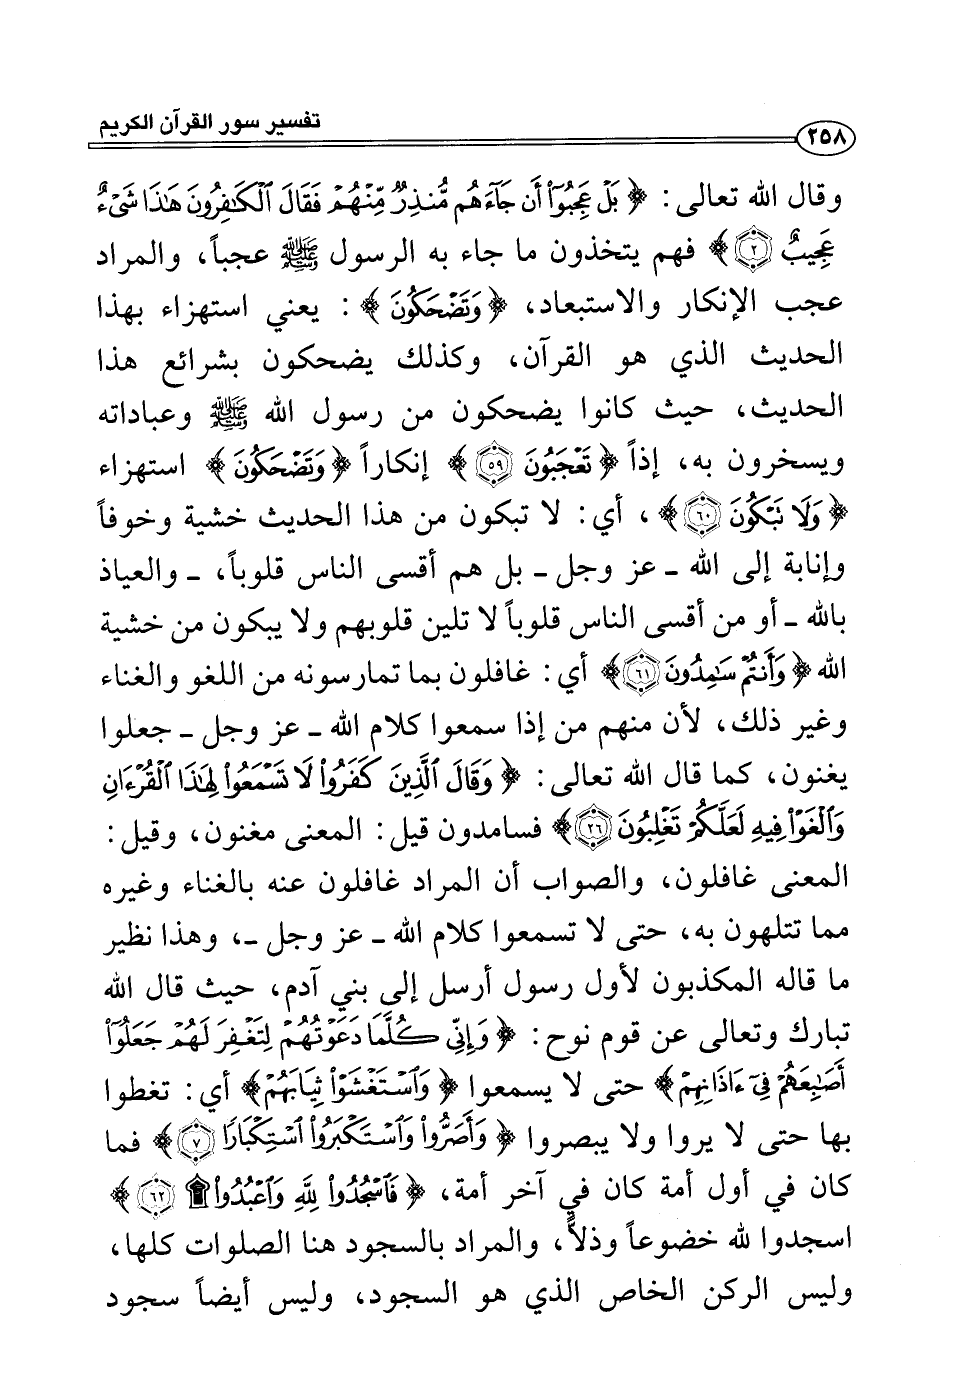 تفسير سور القرآن الكريم
٢٥٨
وقال الله تعالى: ﴿بَلْ عَجِبُوٓا۟ أَن جَآءَهُم مُّنذِرٌ مِّنْهُمْ فَقَالَ ٱلْكَٰفِرُونَ هَٰذَا شَىْءٌ
عَجِيبٌ ٢﴾ فهم يتخذون ما جاء به الرسول ﷺ عجباً، والمراد
عجب الإنكار والاستبعاد، ﴿وَتَضْحَكُونَ﴾: يعني استهزاء بهذا
الحديث الذي هو القرآن، وكذلك يضحكون بشرائع هذا
الحديث، حيث كانوا يضحكون من رسول الله ﷺ وعباداته
ويسخرون به، إذاً ﴿تَعْجَبُونَ ٥٩﴾ إنكاراً ﴿وَتَضْحَكُونَ﴾ استهزاء
﴿وَلَا تَبْكُونَ ٦٠﴾، أي: لا تبكون من هذا الحديث خشية وخوفاً
وإنابة إلى الله ـ عز وجل ـ بل هم أقسى الناس قلوباً، ـ والعياذ
بالله ـ أو من أقسى الناس قلوباً لا تلين قلوبهم ولا يبكون من خشية
الله ﴿وَأَنتُمْ سَٰمِدُونَ ٦١﴾ أي: غافلون بما تمارسونه من اللغو والغناء
وغير ذلك، لأن منهم من إذا سمعوا كلام الله ـ عز وجل ـ جعلوا
يغنون، كما قال الله تعالى: ﴿وَقَالَ ٱلَّذِينَ كَفَرُوا۟ لَا تَسْمَعُوا۟ لِهَٰذَا ٱلْقُرْءَانِ
وَٱلْغَوْا۟ فِيهِ لَعَلَّكُمْ تَغْلِبُونَ ٢٦﴾ فسامدون قيل: المعنى مغنون، وقيل:
المعنى غافلون، والصواب أن المراد غافلون عنه بالغناء وغيره
مما تتلهون به، حتى لا تسمعوا كلام الله ـ عز وجل ـ، وهذا نظير
ما قاله المكذبون لأول رسول أرسل إلى بني آدم، حيث قال الله
تبارك وتعالى عن قوم نوح: ﴿وَإِنِّى كُلَّمَا دَعَوْتُهُمْ لِتَغْفِرَ لَهُمْ جَعَلُوٓا۟
أَصَٰبِعَهُمْ فِىٓ ءَاذَانِهِمْ﴾ حتى لا يسمعوا ﴿وَٱسْتَغْشَوْا۟ ثِيَابَهُمْ﴾ أي: تغطوا
بها حتى لا يروا ولا يبصروا ﴿وَأَصَرُّوا۟ وَٱسْتَكْبَرُوا۟ ٱسْتِكْبَارًا ٧﴾ فما
كان في أول أمة كان في آخر أمة، ﴿فَٱسْجُدُوا۟ لِلَّهِ وَٱعْبُدُوا۟ ۩ ٦٢﴾
اسجدوا لله خضوعاً وذلاً، والمراد بالسجود هنا الصلوات كلها،
وليس الركن الخاص الذي هو السجود، وليس أيضاً سجود